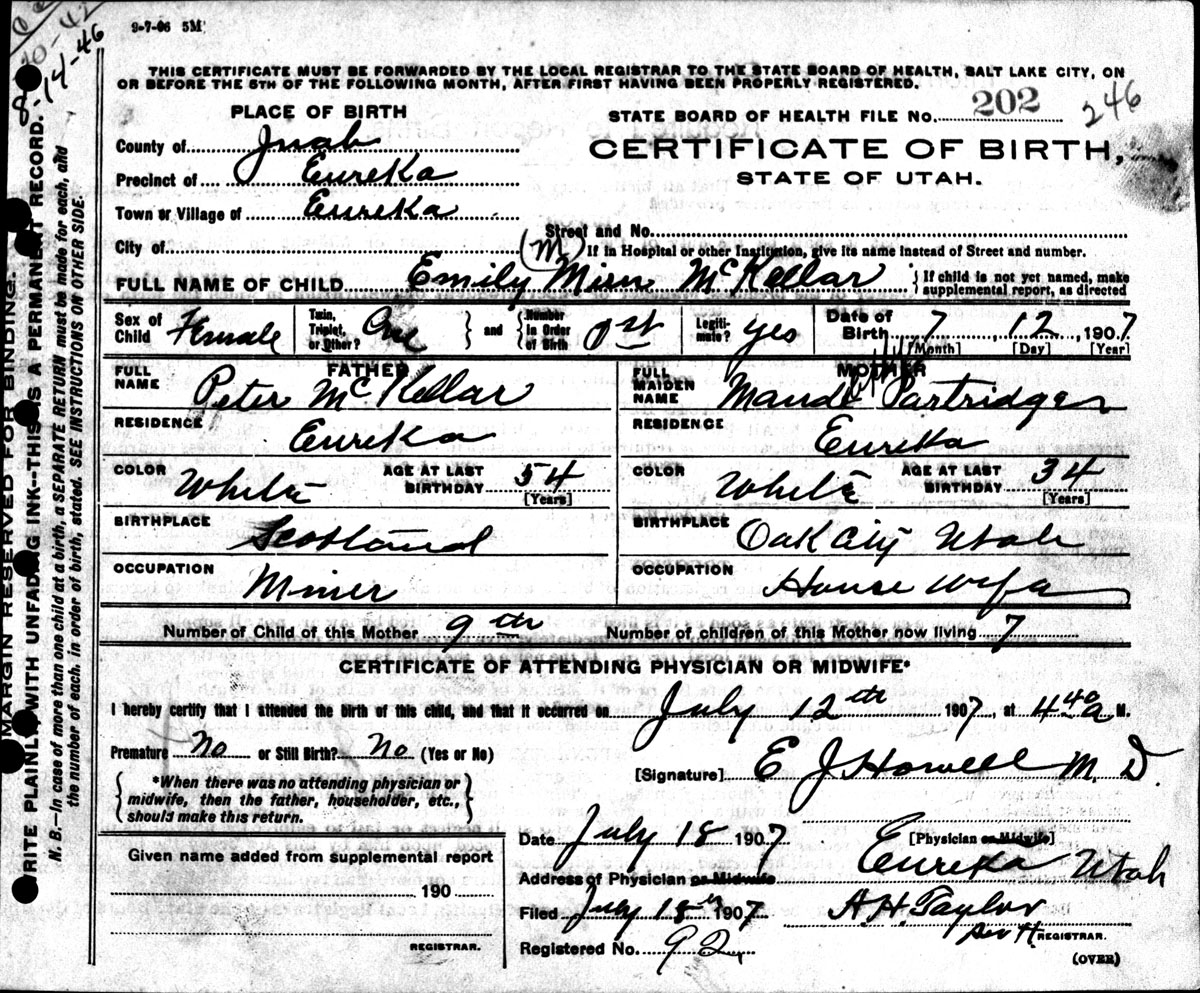 9-7-06 5M
8-14-46
THIS CERTIFICATE MUST BE FORWARDED BY THE LOCAL REGISTRAR TO THE STATE BOARD OF HEALTH, SALT LAKE CITY, ON
OR BEFORE THE 5TH OF THE FOLLOWING MONTH, AFTER FIRST HAVING BEEN PROPERLY REGISTERED.
PLACE OF BIRTH
STATE BOARD OF HEALTH FILE No. 202 246
CERTIFICATE OF BIRTH,
STATE OF UTAH.
County of Juab
Precinct of Eureka
Town or Village of Eureka
Street and No.
City of
(M) If in Hospital or other Institution, give its name instead of Street and number.
FULL NAME OF CHILD Emily Mirn McKellar
If child is not yet named, make
supplemental report, as directed
Sex of Child Female Twin, Triplet, or Other? One and Number in Order of Birth 1st Legitimate? Yes Date of Birth 7 12, 1907
[Month] [Day] [Year]
FATHER MOTHER
FULL NAME Peter McKellar FULL MAIDEN NAME Maude Partridge
RESIDENCE Eureka RESIDENCE Eureka
COLOR White AGE AT LAST BIRTHDAY 54 [Years] COLOR White AGE AT LAST BIRTHDAY 34 [Years]
BIRTHPLACE Scotland BIRTHPLACE Oak City Utah
OCCUPATION Miner OCCUPATION House wife
Number of Child of this Mother 9th Number of children of this Mother now living 7
CERTIFICATE OF ATTENDING PHYSICIAN OR MIDWIFE*
I hereby certify that I attended the birth of this child, and that it occurred on July 12th 1907, at 4 40 a M.
Premature No or Still Birth? No (Yes or No)
[Signature] E J Howell M. D.
*When there was no attending physician or
midwife, then the father, householder, etc.,
should make this return.
[Physician or Midwife]
Date July 18 1907
Given name added from supplemental report
Address of Physician or Midwife Eureka Utah
190
Filed July 18th 1907 A.H. Taylor
REGISTRAR.
REGISTRAR.
Registered No. 92
(OVER)
MARGIN RESERVED FOR BINDING.
WRITE PLAINLY, WITH UNFADING INK--THIS IS A PERMANENT RECORD.
N. B.—In case of more than one child at a birth, a SEPARATE RETURN must be made for each, and
the number of each, in order of birth, stated. SEE INSTRUCTIONS ON OTHER SIDE.